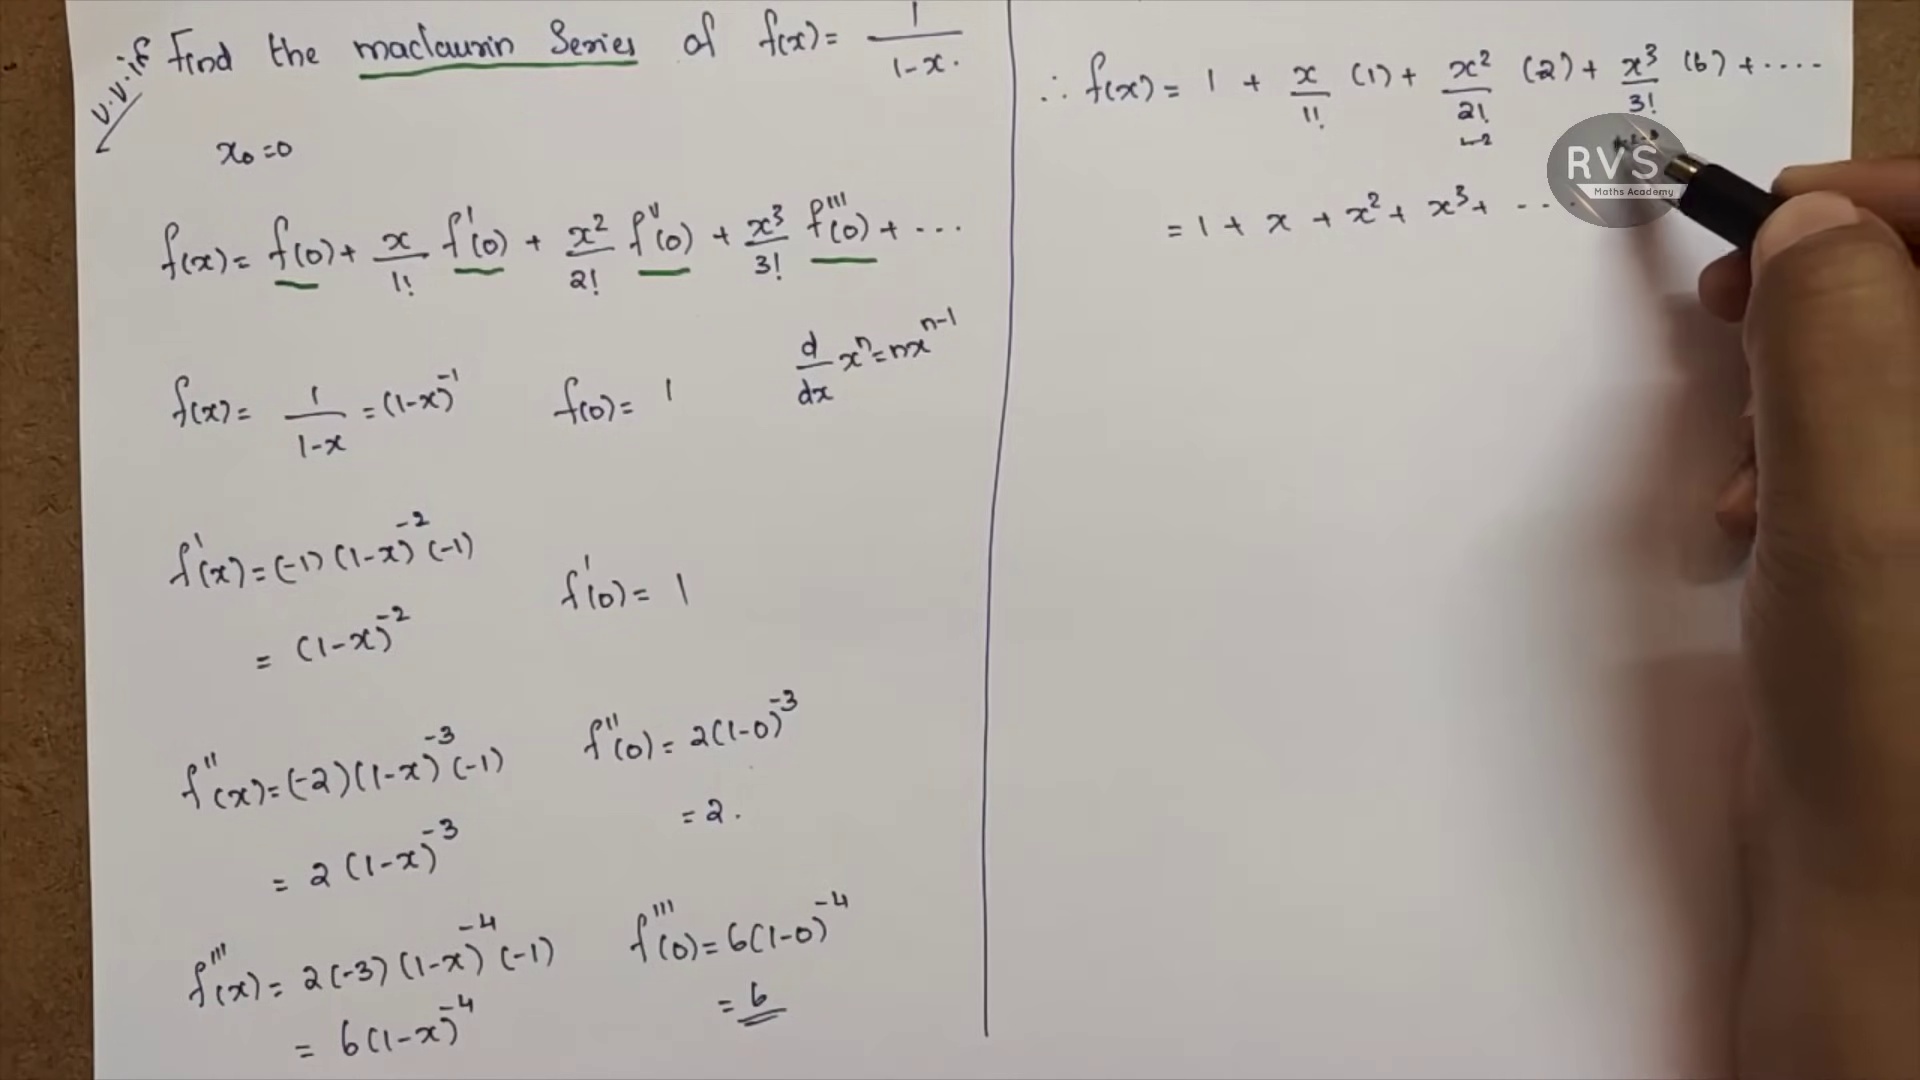 V.V.if
Find the maclaurin Series of f(x) = 1/(1-x).
x₀ = 0
f(x) = f(0) + x/1! f'(0) + x²/2! f''(0) + x³/3! f'''(0) + ...
d/dx xⁿ = nxⁿ⁻¹
f(x) = 1/(1-x) = (1-x)⁻¹ f(0) = 1
f'(x) = (-1)(1-x)⁻²(-1)
= (1-x)⁻² f'(0) = 1
f''(x) = (-2)(1-x)⁻³(-1) f''(0) = 2(1-0)⁻³
= 2(1-x)⁻³ = 2.
f'''(x) = 2(-3)(1-x)⁻⁴(-1) f'''(0) = 6(1-0)⁻⁴
= 6(1-x)⁻⁴ = 6
∴ f(x) = 1 + x/1! (1) + x²/2! (2) + x³/3! (6) + ....
1·2
= 1 + x + x² + x³ + ....
RVS
Maths Academy